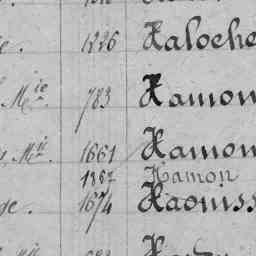 e. 1226 Haloche
Mie 783 Hamon
Mie 1661 Hamon
1867 Hamon
ge. 1674 Haouiss